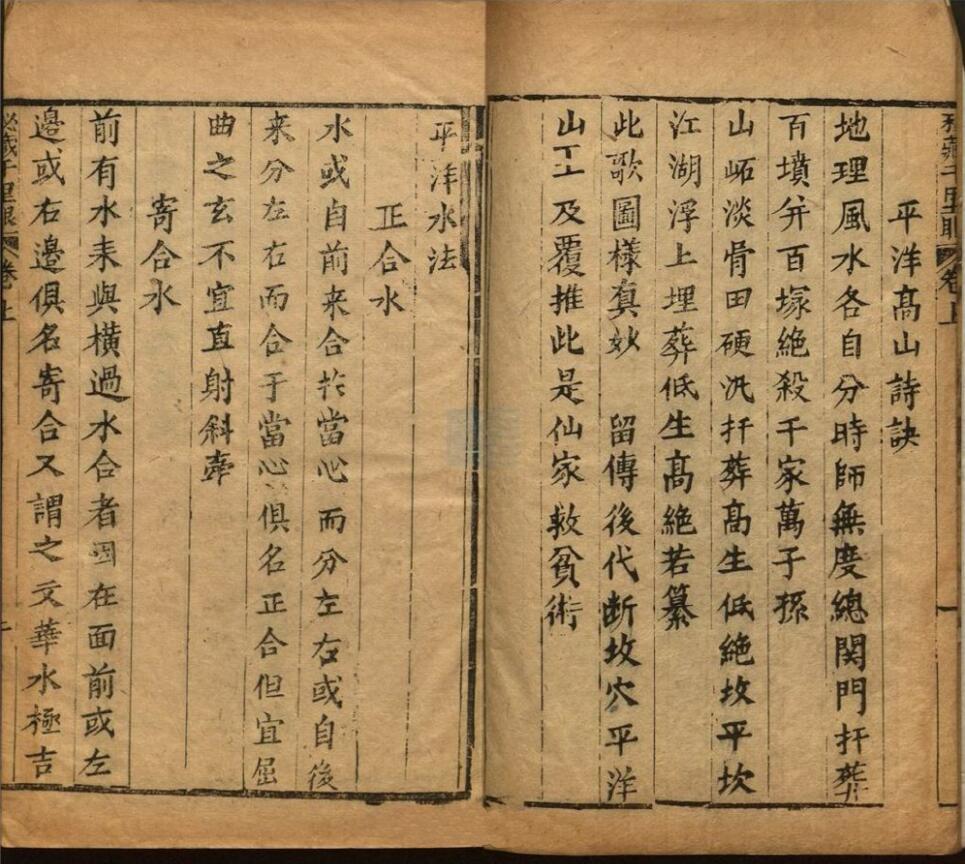 平洋髙山詩訣
地理風水各自分時師無度總関門扦葬
百墳并百塚絶殺千家萬子孫
山岴淡骨田硬氿扦葬髙生低絶坟平坎
江湖浮上埋葬低生髙絶若纂
此歌圖樣真妙 留傳後代断坟穴平洋
山工及覆推此是仙家救貧術
卷上
平洋水法
正合水
水或自前来合扵當心而分左右或自後
来分左右而合于當心俱名正合但宜屈
曲之玄不宜直射斜牽
寄合水
前有水耒與橫過水合者因在面前或左
邊或右邊俱名寄合又謂之文華水極吉
卷上